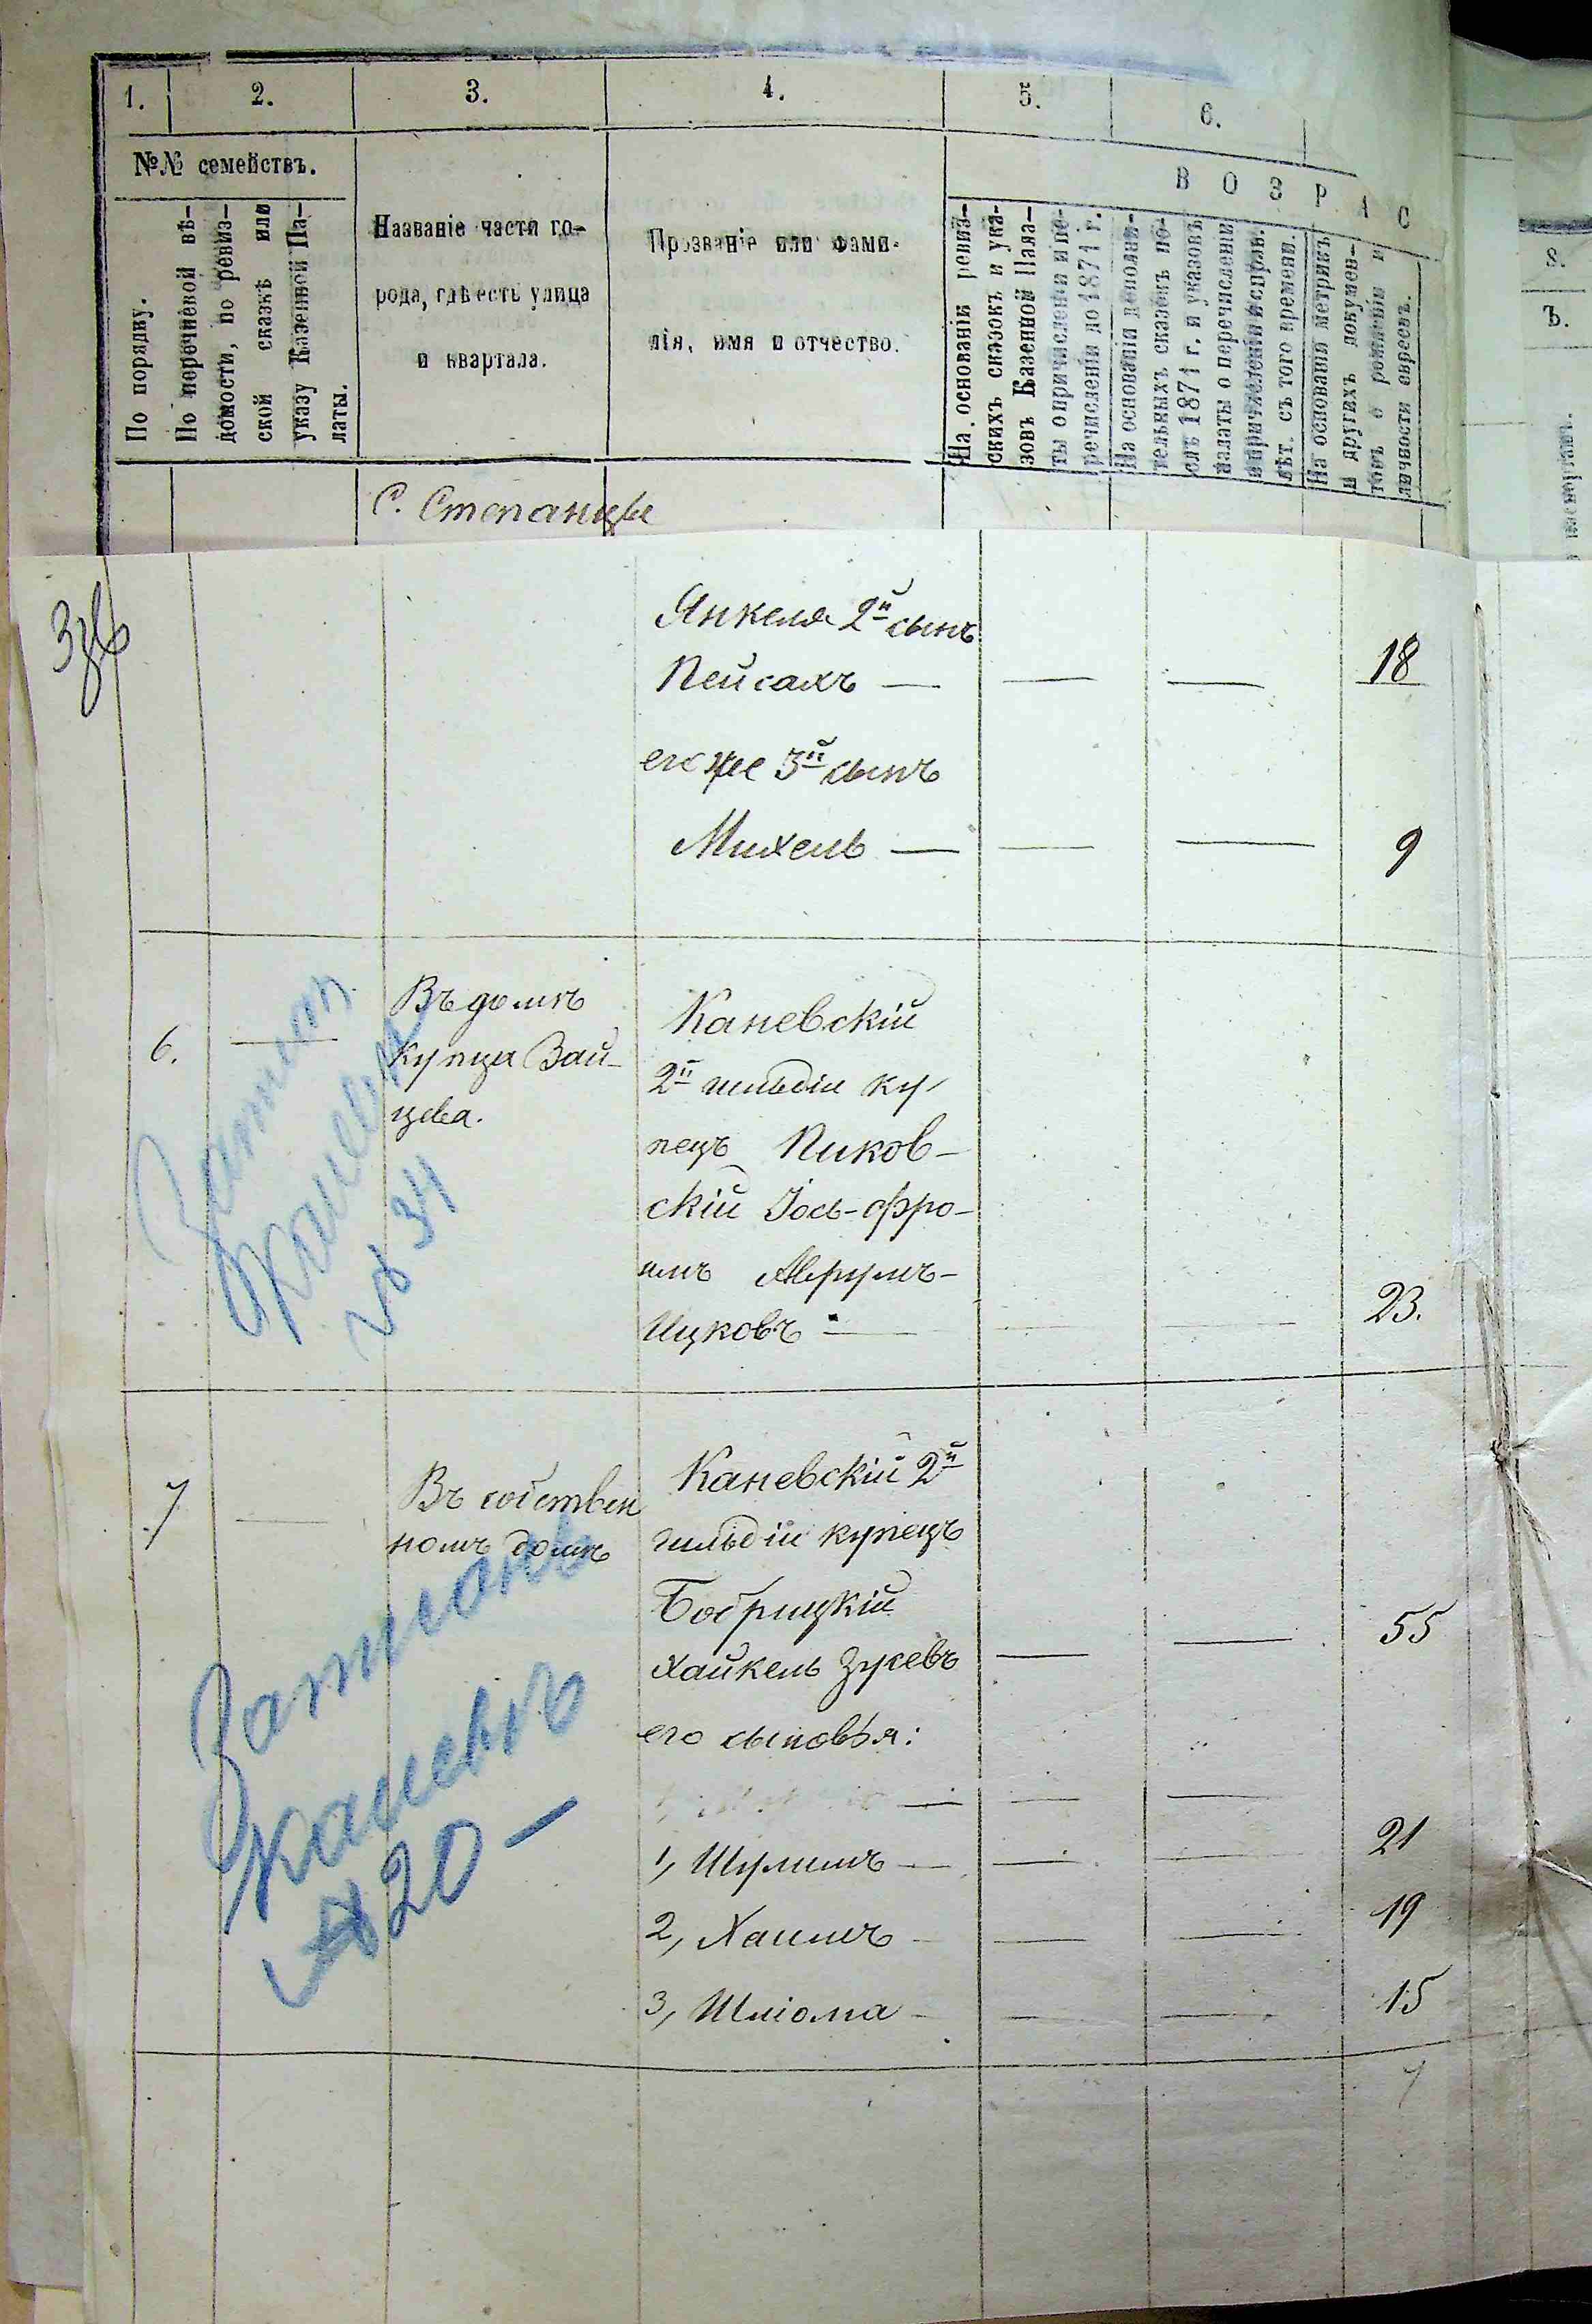 1. 2. 3. 4. 5. 6.
№№ семействъ.
По порядку.
По перечневой вѣ-
домости, по ревиз-
ской сказкѣ или
указу Казенной Па-
латы.
Названіе части го-
рода, гдѣ есть улица
и квартала.
Прозваніе или фами-
лія, имя и отчество.
ВОЗРАС
На основаніи ревиз-
скихъ сказокъ и ука-
зовъ Казенной Пала-
ты о причисленіи и пе-
речисленіи до 1871 г.
На основаніи дополни-
тельныхъ сказокъ по-
слѣ 1871 г. и указовъ
палаты о перечисленіи
и причисленіи исправ.
лѣт. съ того времени.
На основаніи метрикъ
и другихъ докумен-
товъ о рожденіи и
личности евреевъ.
8.
Ъ.
С. Степанцы
Янкеля 2й сынъ
Пейсахъ — 18
его же 3й сынъ
Михель — 9
6.
Въ домѣ
купца Зай-
цева.
Каневскій
2й гильдіи ку-
пецъ Пиков-
скій Іось-Фро-
имъ Аврумъ-
Ицковъ — 23.
Записан
Каневъ
№ 34
7
Въ собствен
номъ домѣ
Каневскій 2й
гильдіи купецъ
Бобрицкій
Хайкель Зусевъ 55
его сыновья:
1, Шулимъ — 21
2, Хаимъ — 19
3, Шліома — 15
Каневъ
№ 20 —